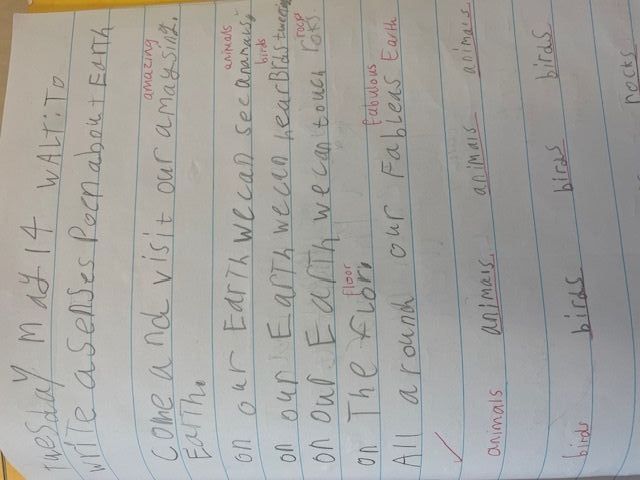 Tuesday May 14 WALT: To
write a senses Poen about EartH
amazing
Come and visit our amaysing.
Earth.
animals
on our Earth we can see
birds
on our Earth we can hear Birds
on our Earth we can touch roks.
floor
on The
fabulous
All around our Fableas Earth
✓
animals animals animals animals
birds birds birds birds
rocks